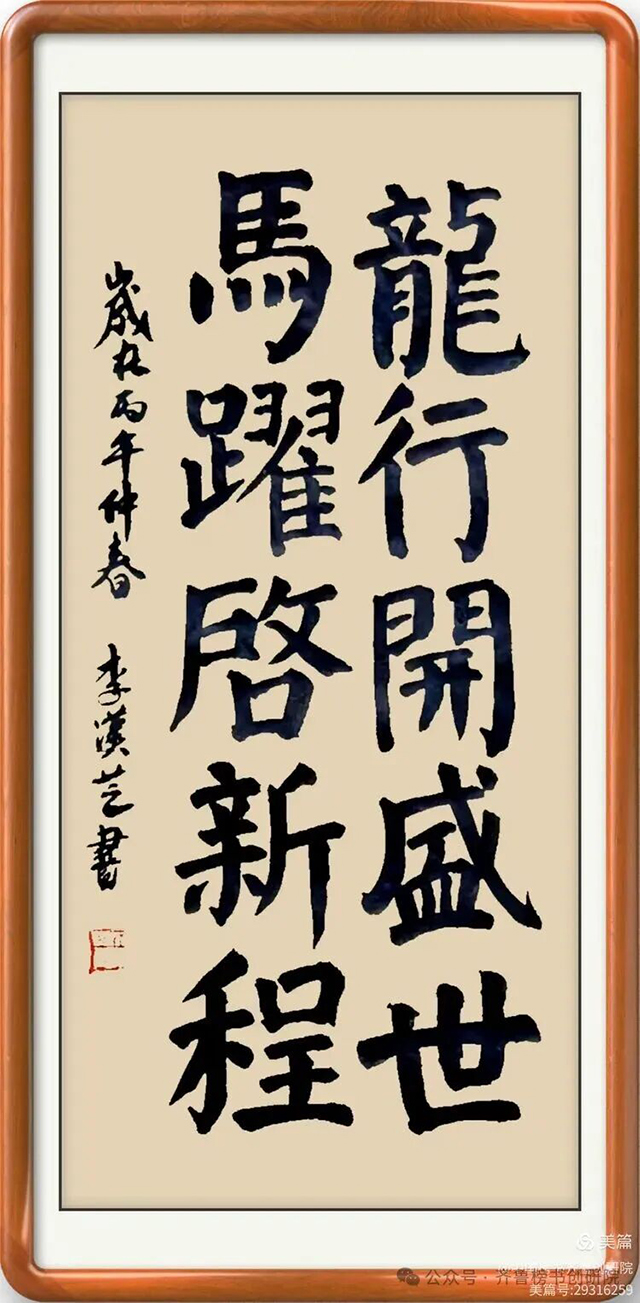 龍行開盛世
馬躍啓新程
歲在丙午仲春 李漢芝書
美篇
公众号·齐鲁榜书创研院
美篇号:29316259